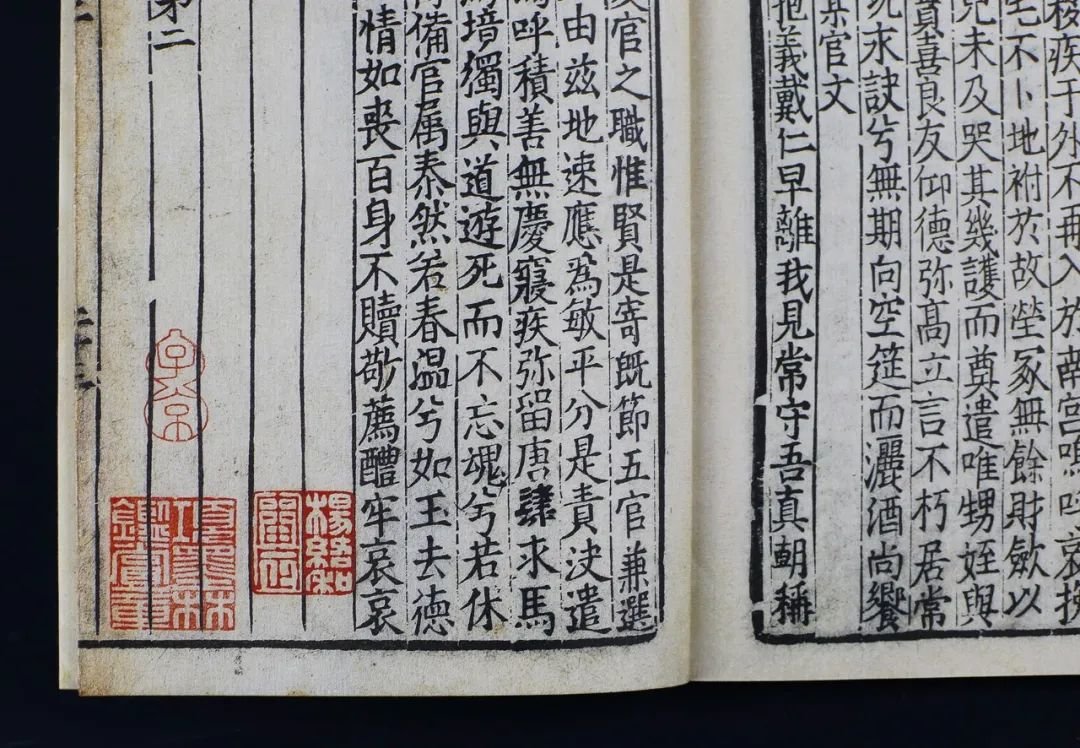 疾于外不再入於南宮嗚呼哀
宅不卜地祔於故塋冢無餘財歛以
兒未及哭其幾護而奠遣唯甥姪與
喜良友仰德弥高立言不朽居常
永訣兮無期向空筵而灑酒尚饗
官文
抱義戴仁早離我見常守吾真朝稱
官之職惟賢是寄既節五官兼選
由兹地速應為敏平分是責决遣
呼積善無慶寢疾弥留唐肆求馬
境獨與道遊死而不忘魂兮若休
備官属泰然若春温兮如玉去德
情如喪百身不贖敬薦醴牢哀哀
楊紹和
第二
子京
項墨林鑑賞章